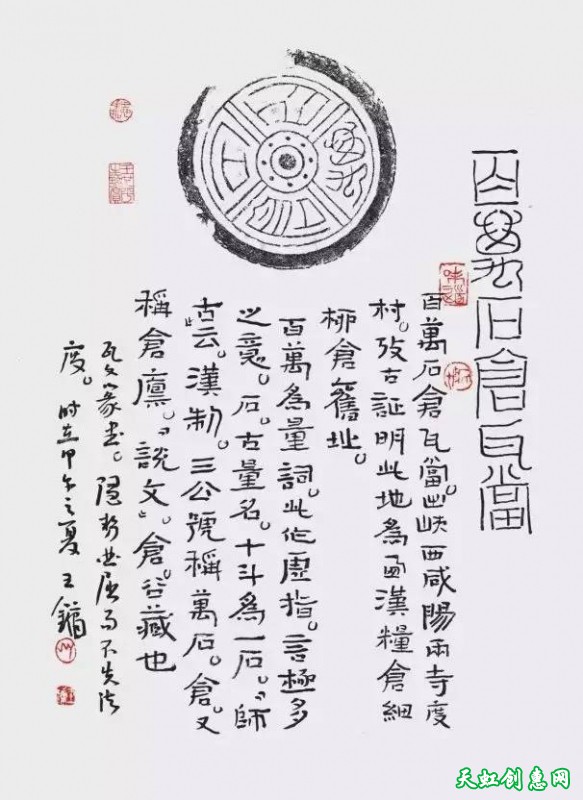 百萬石倉瓦當
百萬石倉瓦當。出峽西咸陽兩寺度
村。攷古証明此地為西漢糧倉細
柳倉舊址。
百萬為量詞。此作虛指。言極多
之意。石。古量名。十斗為一石。『師
古』云。漢制。三公號稱萬石。倉。又
稱倉廩。『說文』。倉。谷藏也
瓦文篆書。隨勢曲屈而不失法
度。時在甲午之夏王鏞
天虹创惠网